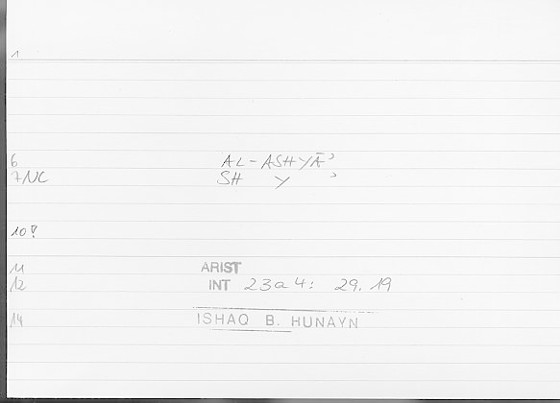 1
6 AL-ASHYĀʾ
7NC SH Y ʾ
10!
11 ARIST
12 INT 23a4: 29.19
14 ISHAQ B. HUNAYN